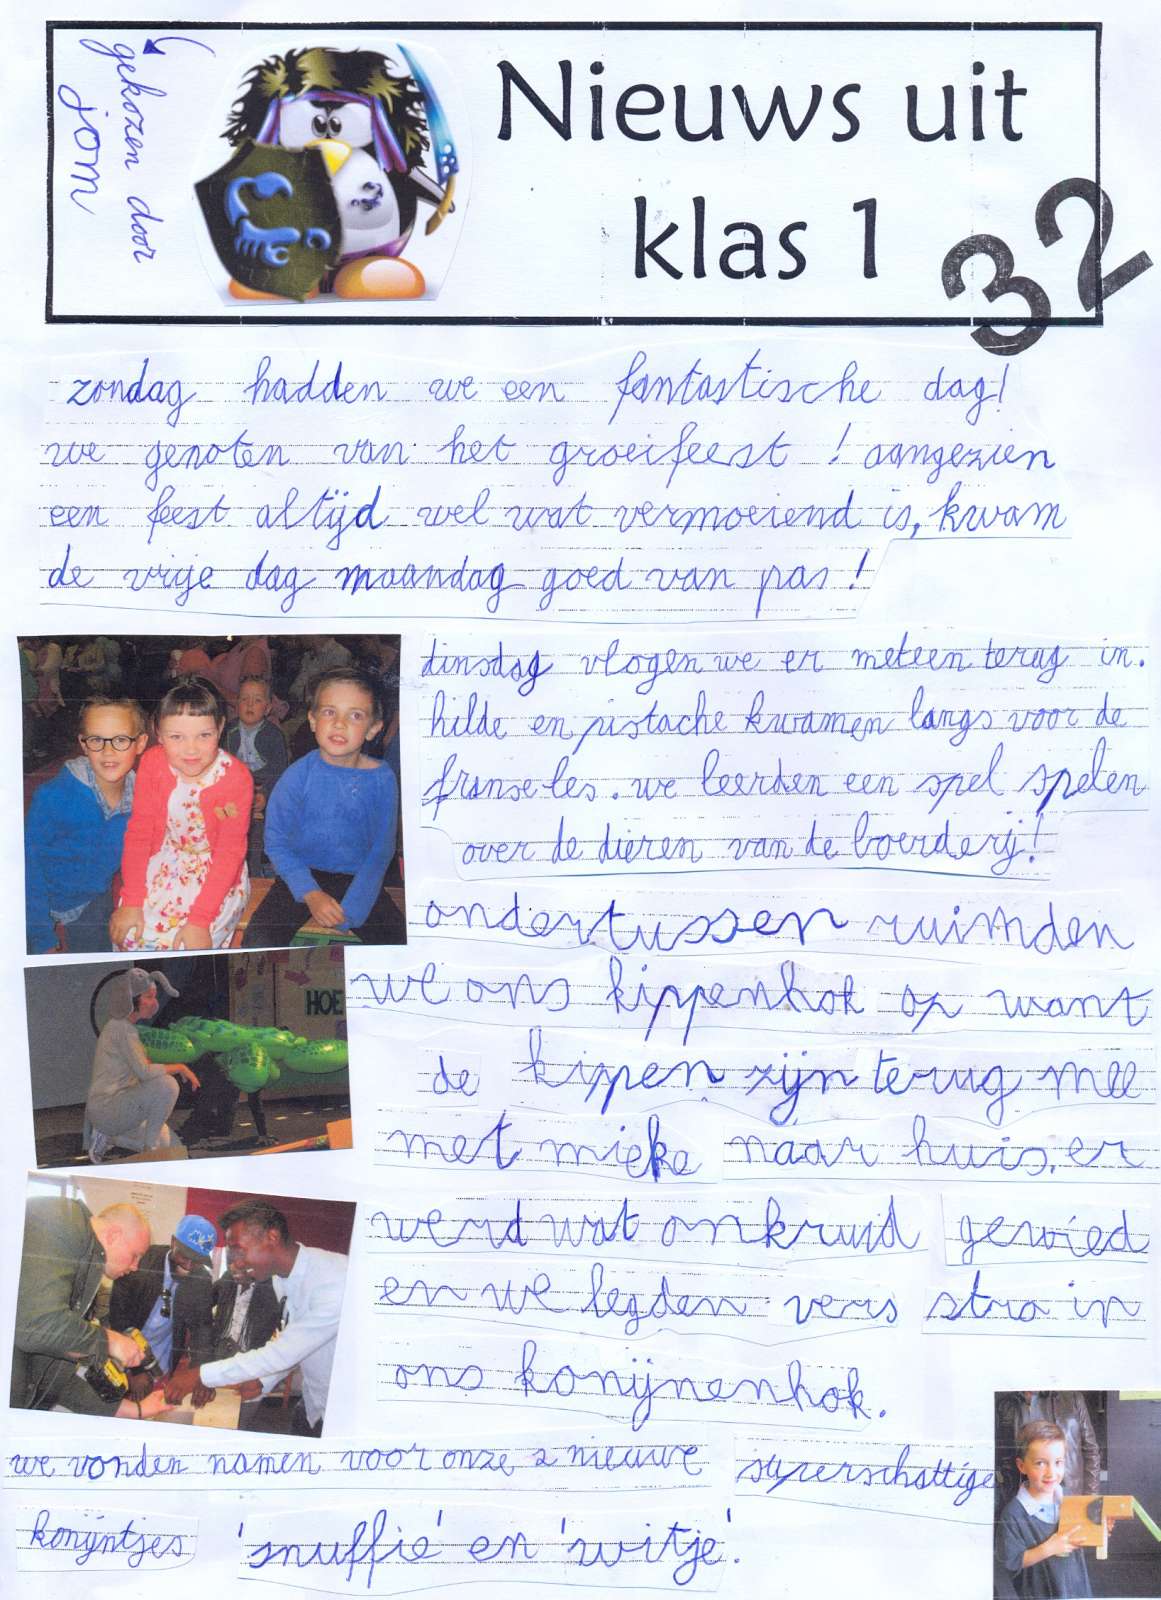 gekozen door
jom
Nieuws uit
klas 1
32
zondag hadden we een fantastische dag!
we genoten van het groeifeest! aangezien
een feest altijd wel wat vermoeiend is, kwam
de vrije dag maandag goed van pas!
dinsdag vlogen we er meteen terug in.
hilde en pistache kwamen langs voor de
franse les. we leerden een spel spelen
over de dieren van de boerderij!
ondertussen ruimden
we ons kippenhok op want
de kippen zijn terug mee
met mieke naar huis. er
werd wat onkruid gewied
en we legden vers stro in
ons konijnenhok.
we vonden namen voor onze 2 nieuwe superschattige
konijntjes 'snuffie' en 'witje'.
HOE